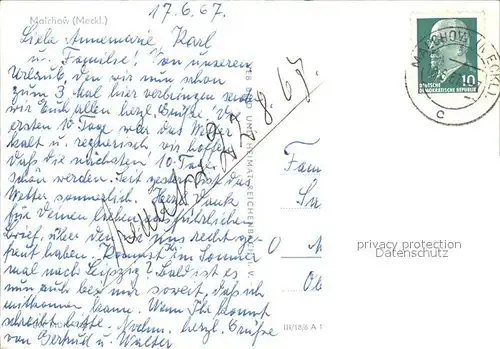 17.6.67.
Malchow (Meckl.)
Liebe Annemarie Karl
u. Familie! Von unseren
Urlaub, den wir nun schon
zum 3. Mal hier verbringen senden
wir Euch allen herzl. Grüße. Die
ersten 10 Tage war das Wetter
kalt u. regnerisch, wir hoffen
daß die nächsten 10 Tage
schön werden. Seit gestern ist das
Wetter sommerlich. Herzl. Dank
für Deinen lieben ausführlichen
Brief, über den wir uns recht gefreut
freut haben. Kommst im Sommer
mal nach Leipzig? Bald ist es
nun auch bei mir soweit, daß ich
mitkommen kann. Wenn Ihr kommt
schreibt bitte. Nochm. herzl. Grüße
von Gertrud u. Walter
22.8.67
BILD UND HEIMAT REICHENBACH I. V.
III/18/6 A 1
MALCHOW (MECKL)
c
10
DEUTSCHE
DEMOKRATISCHE REPUBLIK
Fam
O
privacy protection
Datenschutz